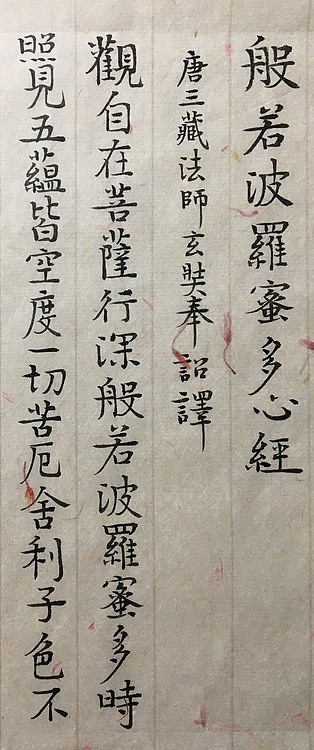 般若波羅蜜多心經
唐三藏法師玄奘奉詔譯
觀自在菩薩行深般若波羅蜜多時
照見五蘊皆空度一切苦厄舍利子色不